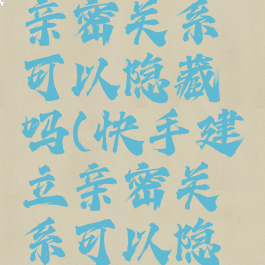 亲密关系
可以隐藏
吗(快手建
立亲密关
系可以隐